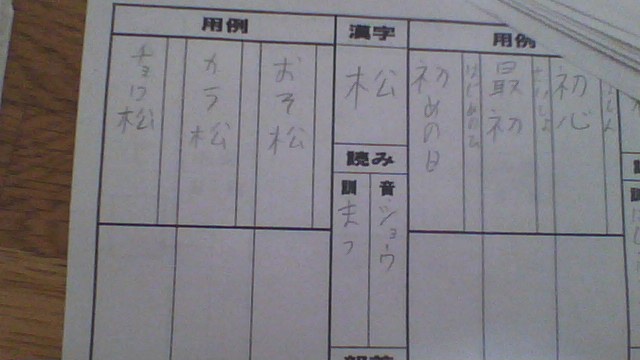 用例
初心
しょしん
最初
さいしょ
初めの日
はじめのひ
漢字
松
読み
音
ショウ
訓
まつ
用例
おそ松
カラ松
チョロ松